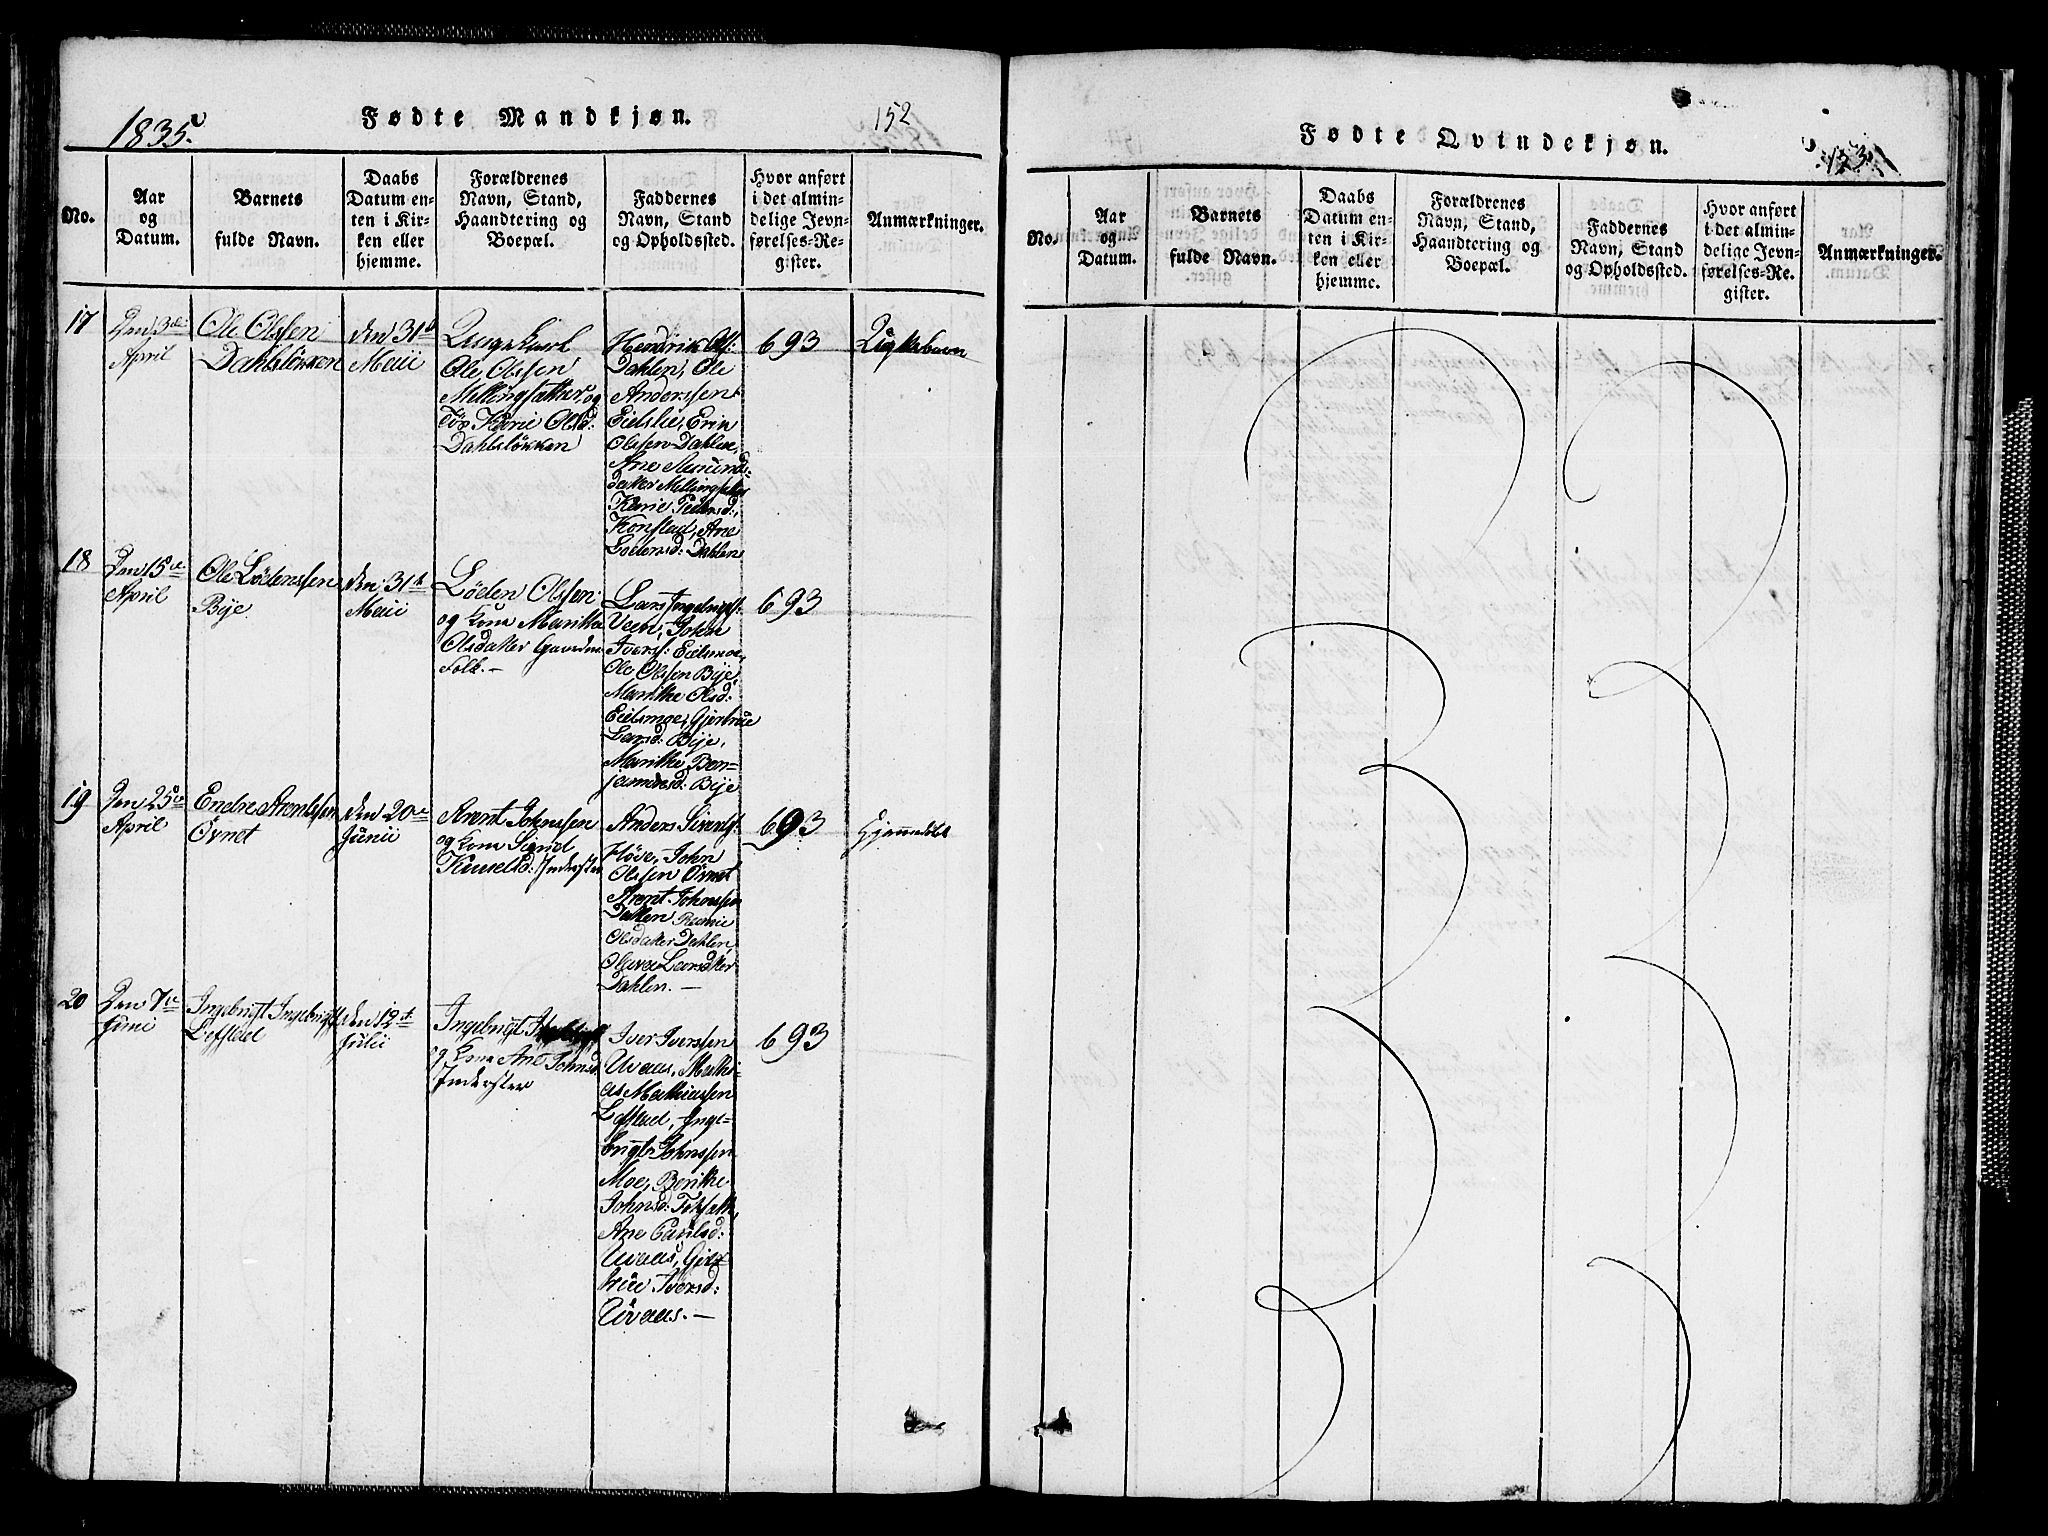 1835.
Fødte Mandkjøn.
152
No.
Aar
og
Datum.
Barnets
fulde Navn.
Daabs
Datum en-
ten i Kir-
ken eller
hjemme.
Forældrenes
Navn, Stand,
Haandtering og
Boepæl.
Faddernes
Navn, Stand
og Opholdssted.
Hvor anført
i det almin-
delige Jevn-
førelses-Re-
gister.
Anmærkninger.
17
Den 3die
April
Ole Olssen
Dahlsløkken
den 31te
Maii
Ungekarl
Ole Olssen
Mellingsætter, og
Tøs Karie Olsd:
Dahlsløkken
Hendrik Ols:
Dahlen, Ole
Anderssen
Eielslie, Erin
Olssen Dahlen,
Ane Amunds-
datter Mellingsetter
Karie Pedersd:
Konstad, Ane
Loedensd: Dahlen
693
Uægtebarn
18
Den 15de
April
Ole Lödenssen
Bye
den 31te
Maii
Löden Olssen
og Kone Marithe
Olsdatter Gaardm
Folk.-
Lars Ingebrigts:
Veen, John
Ivers: Eielsmoe,
Ole Olssen Bye,
Marithe Olsd:
Eielsmoe, Gjertrue
Larsd: Bye,
Marithe Ben-
jaminsd: Bye
693
19
Den 25de
April
Endre Arentssen
Övnet
den 20de
Junii
Arent Johnssen
og Kone Sigrid
Knuelsd: Inderster
Anders Siverts:
Höve, John
Olssen Övnet
Arent Johnssen
Dahlen
Olsdatter Dahlen,
Olava Larsdtter
Dahlen.-
693
Hjemmedöbt
20
Den 7de
Juni
Ingebrigt Ingebrigts:
Lefstad
den 12te
Julii
Ingebrigt
og Kone Ane Johnsd:
Inderster
Iver Iverssen
Uvaas, Mathi-
as Mathiassen
Lefstad, Inge-
brigt Johnssen
Moe, Berithe
Johnsd:
Ane Paulsd:
Uvaas, Gier-
true Iversd:
Uvaas.-
693
Fødte Qvindekjøn.
153
No.
Aar
og
Datum.
Barnets
fulde Navn.
Daabs
Datum en-
ten i Kir-
ken eller
hjemme.
Forældrenes
Navn, Stand,
Haandtering og
Boepæl.
Faddernes
Navn, Stand
og Opholdssted.
Hvor anført
i det almin-
delige Jevn-
førelses-Re-
gister.
Anmærkninger.